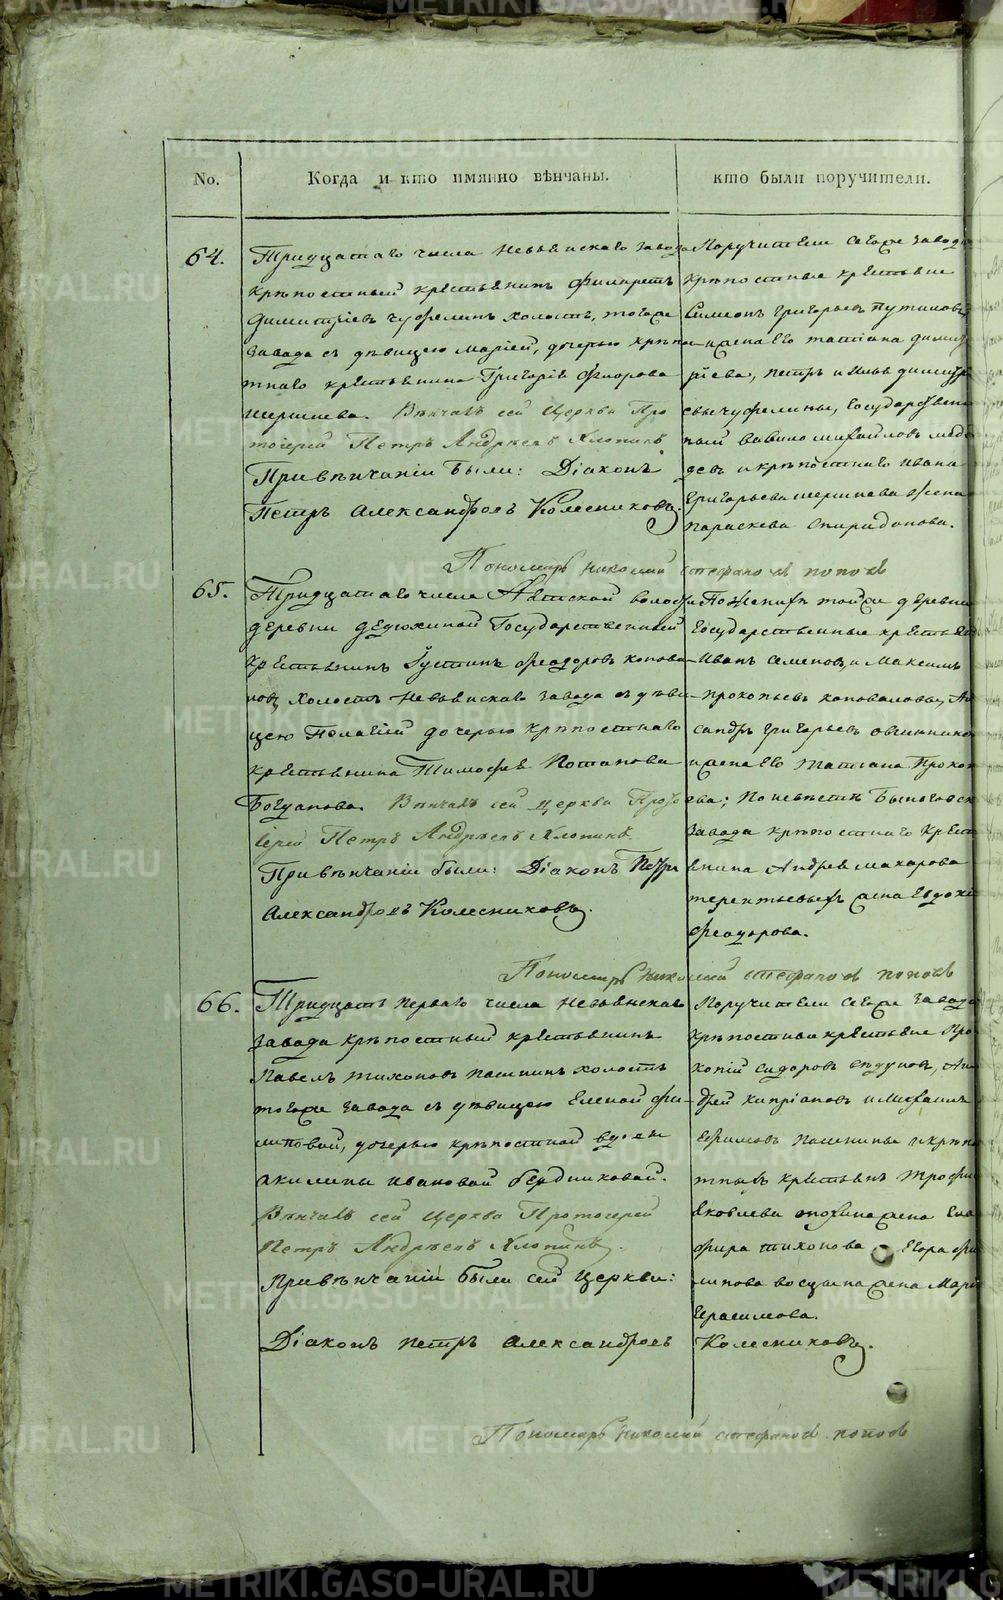 No.
Когда и кто имянно вѣнчаны.
кто были поручители.
64.
Тридцатаго числа Невьянскаго завода
крѣпостный крестьянинъ Филаретъ
Димитріевъ Чуфелинъ холостъ, тогоже
завода съ дѣвицею Маріей, дочерью крѣпо-
стнаго крестьянина Григорія Флорова
Шершнева. Вѣнчалъ сей Церкви Про
тоіерей Петръ Андреевъ Хлопинъ
При вѣнчаніи были: Діаконъ
Петръ Александровъ Колесниковъ.
Поручители тогоже завода
крѣпостные крестьяне
Симеонъ Григорьевъ Путиловъ
и жена его Татіана Димит
ріева, Петръ и Димит
евы Чуфелины, Государствен
ный Михайловъ
и крѣпостнаго Ивана
Григорьева Шершнева жена
Параскева Спиридонова.
Пономарь Николай Стефановъ Поповъ
65.
Тридцатаго числа Аятской волости
деревни Дедюхиной Государственный
крестьянинъ Іустинъ Феодоровъ Конова
ловъ, холостъ Невьянскаго завода съ дѣви-
цею Пелагіей дочерью крѣпостнаго
крестьянина Тимофея Потапова
Богданова. Вѣнчалъ сей церкви Прото
іерей Петръ Андреевъ Хлопинъ
При вѣнчаніи были: Діаконъ Петръ
Александровъ Колесниковъ.
По женихѣ тойже деревни
Государственные крестьяне
Иванъ Семеновъ и Максимъ
Прокопьевъ Коноваловы, Ле
сандръ Григорьевъ Овчинников
и жена его Татіана Прокоп
ева; по невѣстѣ Быньговск
завода крѣпостнаго крест
янина Андрея Макарова
Терентьевыхъ жена Евдокі
Феодорова.
Пономарь Николай Стефановъ Поповъ
66.
Тридцать перваго числа Невьянскаго
завода крѣпостный крестьянинъ
Павелъ Тихоновъ Пашнинъ холостъ
тогоже завода съ дѣвицею Еленой Фи-
липовой, дочерью крѣпостной вдовы
Акилины Ивановой Бердниковой.
Вѣнчалъ сей Церкви Протоіерей
Петръ Андреевъ Хлопинъ.
При вѣнчаніи были сей Церкви:
Діаконъ Петръ Александровъ Колесниковъ.
Поручители тогоже завода
крѣпостные крестьяне Про
копій Сидоровъ Сѣдуновъ, Ан
дрей Кипріановъ и Михаилъ
Ефимовъ Пашнины и крѣпо
стныхъ крестьянъ Трофи
Яковлева жена Гла
фира Тихонова Егора Фи
липова жена Марі
Герасимова.
Пономарь Николай Стефановъ Поповъ
METRIKI.GASO-URAL.RU